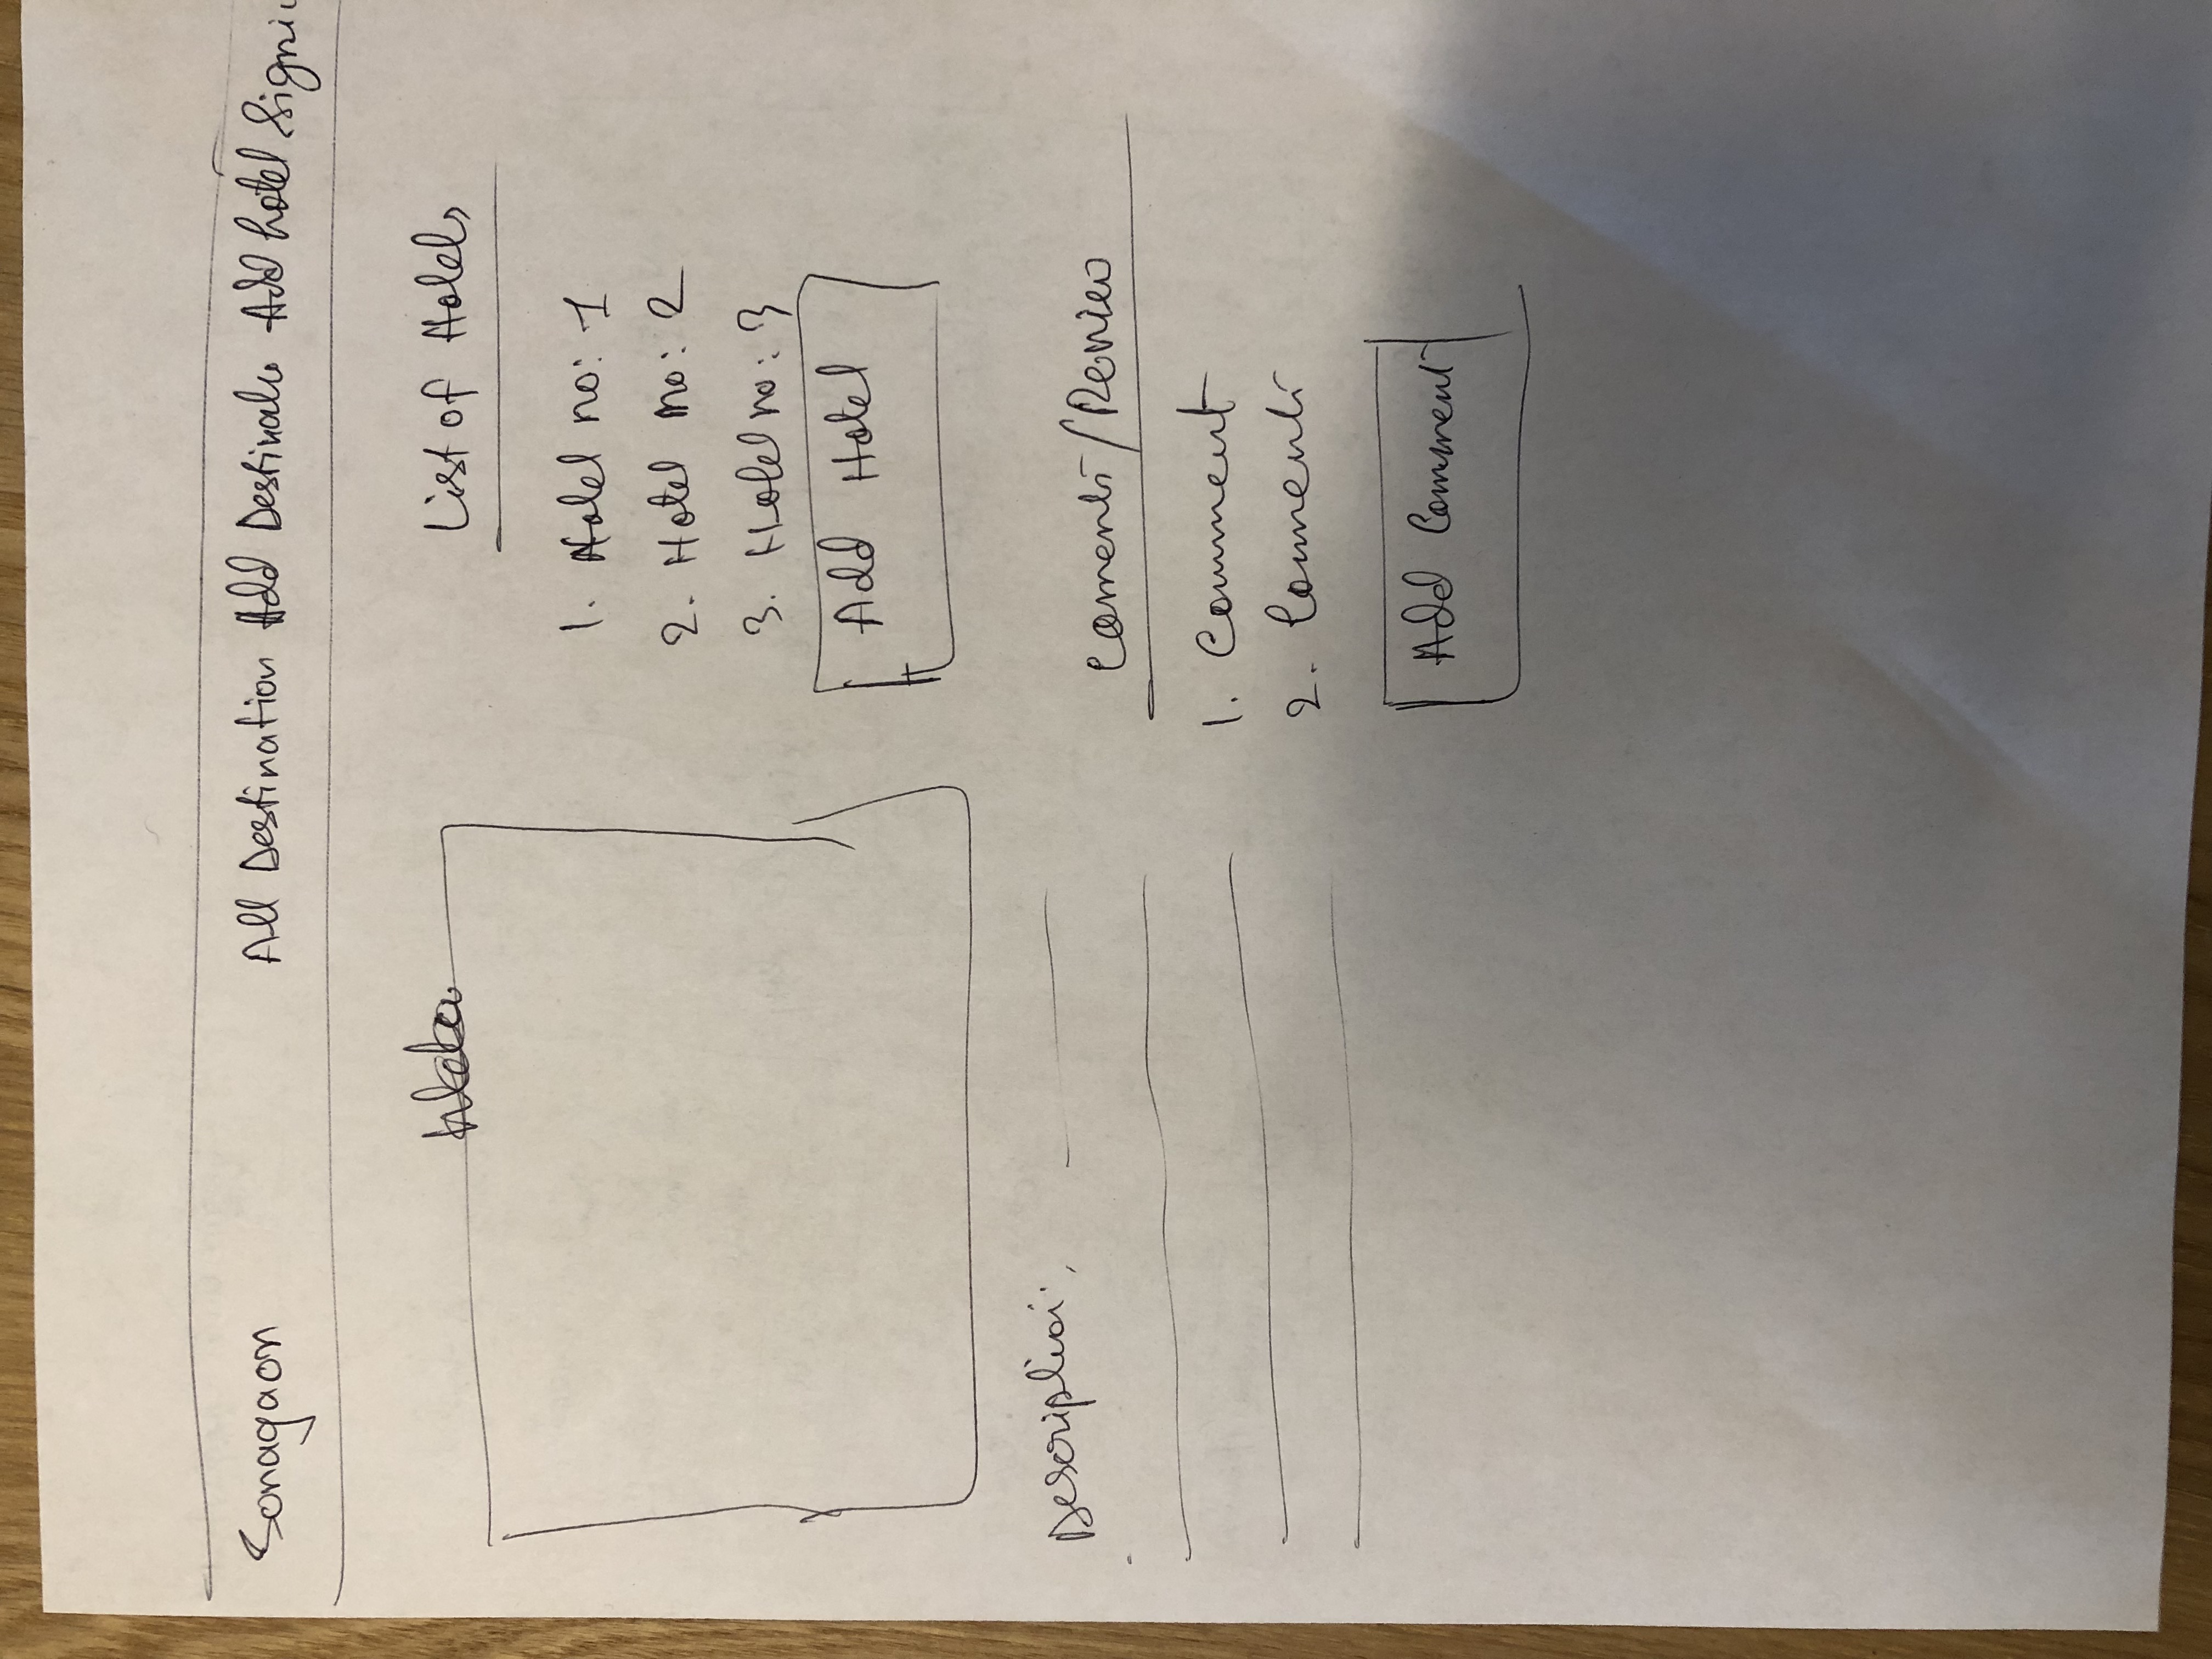 Sonagaon All Destination Add Destinatio Add hotel
List of Hotels
1. Hotel no: 1
2. Hotel no: 2
3. Hotel no: 3
Add Hotel
Description:
Coments/Review
1. Comment
2. Comments
Add Comment